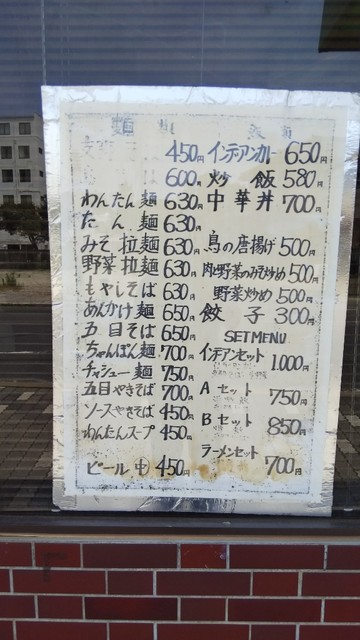 麺
450円
600円
わんたん麺 630円
たん麺 630円
みそ拉麺 630円
野菜拉麺 630円
もやしそば 630円
あんかけ麺 650円
五目そば 650円
ちゃんぽん麺 700円
チャシュー麺 750円
五目やきそば 700円
ソースやきそば 450円
わんたんスープ 450円
ビール 中 450円
インデアンカレー 650円
炒飯 580円
中華丼 700円
鳥の唐揚げ 500円
肉野菜のみそ炒め 500円
野菜炒め 500円
餃子 300円
SET MENU
インデアンセット 1,000円
Aセット 750円
Bセット 850円
ラーメンセット 700円